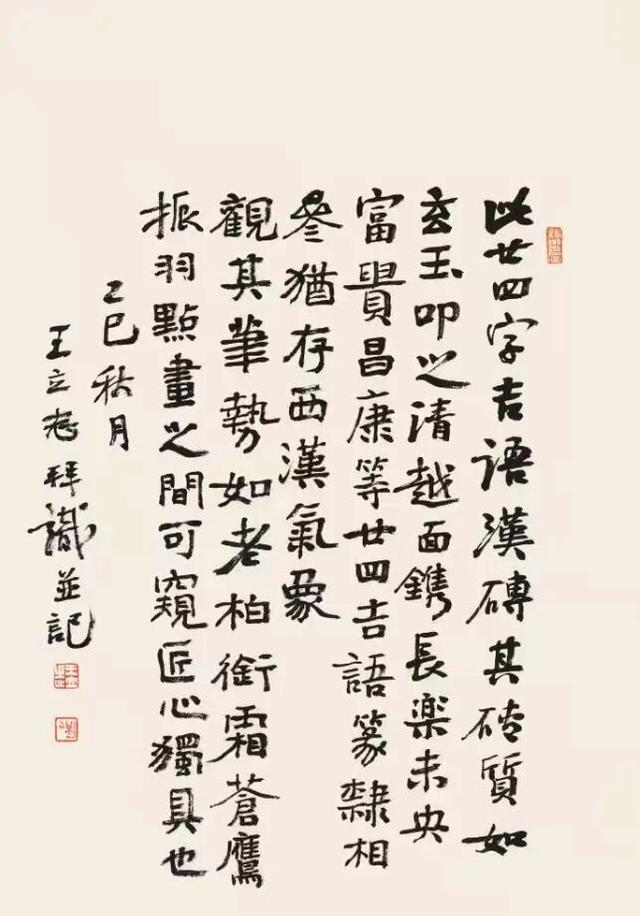 此廿四字吉語漢磚其磚質如
玄玉叩之清越面鐫長樂未央
富貴昌康等廿四吉語篆隸相
參猶存西漢氣象
觀其筆勢如老柏銜霜蒼鷹
振羽點畫之間可窺匠心獨具也
乙巳秋月
王立志拜識並記